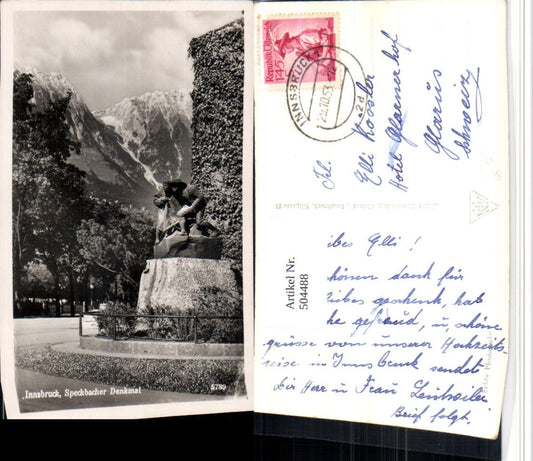 Innsbruck, Speckbacher Denkmal
5780
Republik Österreich
1.45
INNSBRUCK 1
22.10.53
* 2d *
Frl.
Elli Kossler
Hotel Glarnerhof
Glarus
Schweiz
Artikel Nr.
504488
ibes Elli !
hönen dank für
iebes geschenk, hab
he gefreud, u, schöne
grüsse von unserer Hochzeits
reise in Innsbruck sendet
dir Herr u Frau
Brief folgt.